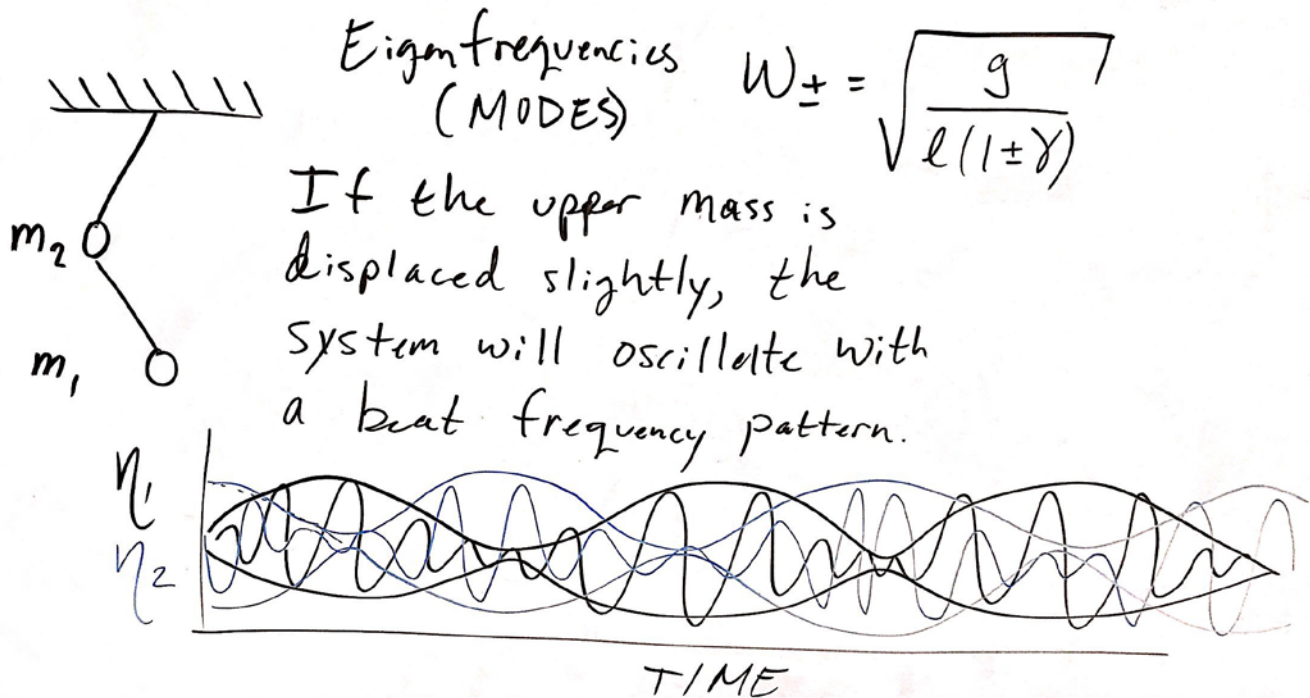 Eigenfrequencies
(MODES)
W± = √(g / ℓ(1±γ))
If the upper mass is
displaced slightly, the
system will oscillate with
a beat frequency pattern.
m₂
m₁
η₁
η₂
TIME